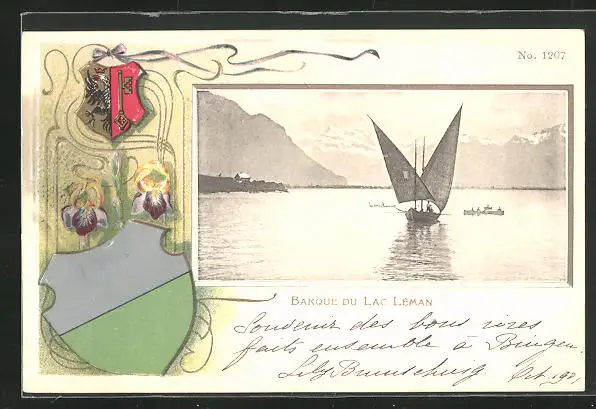 No. 1207
BARQUE DU LAC LÉMAN
Souvenir des bons rires
faits ensemble à Bingen.
Lily Brunschwig. Oct. 190